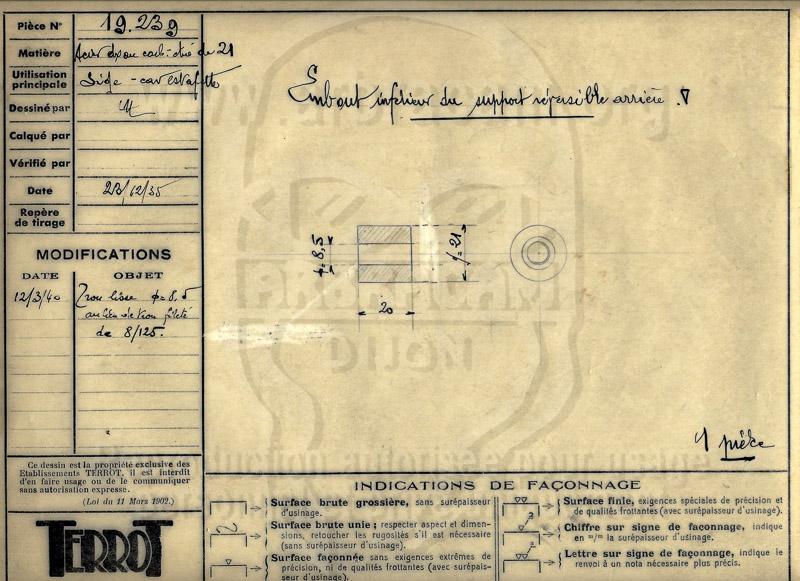 Pièce N° 19.239
Matière Acier doux
Utilisation
principale Siège -
Dessiné par
Calqué par
Vérifié par
Date 23/12/35
Repère
de tirage
MODIFICATIONS
DATE OBJET
12/3/40 Trou lisse φ=8.5
au lieu de trou fileté
de 8/125.
Ce dessin est la propriété exclusive des
Etablissements TERROT, il est interdit
d'en faire usage ou de le communiquer
sans autorisation expresse.
(Loi du 11 Mars 1902.)
TERROT
Embout inférieur du support réversible arrière.
φ=8,5
φ=21
20
1 pièce
INDICATIONS DE FAÇONNAGE
Surface brute grossière, sans surépaisseur
d'usinage.
Surface brute unie ; respecter aspect et dimen-
sions, retoucher les rugosités s'il est nécessaire
(sans surépaisseur d'usinage).
Surface façonnée sans exigences extrêmes de
précision, ni de qualités frottantes (avec surépais-
seur d'usinage).
Surface finie, exigences spéciales de précision et
de qualités frottantes (avec surépaisseur d'usinage).
Chiffre sur signe de façonnage, indique
en m/m la surépaisseur d'usinage.
Lettre sur signe de façonnage, indique le
renvoi à un nota nécessaire plus précis.
DIJON